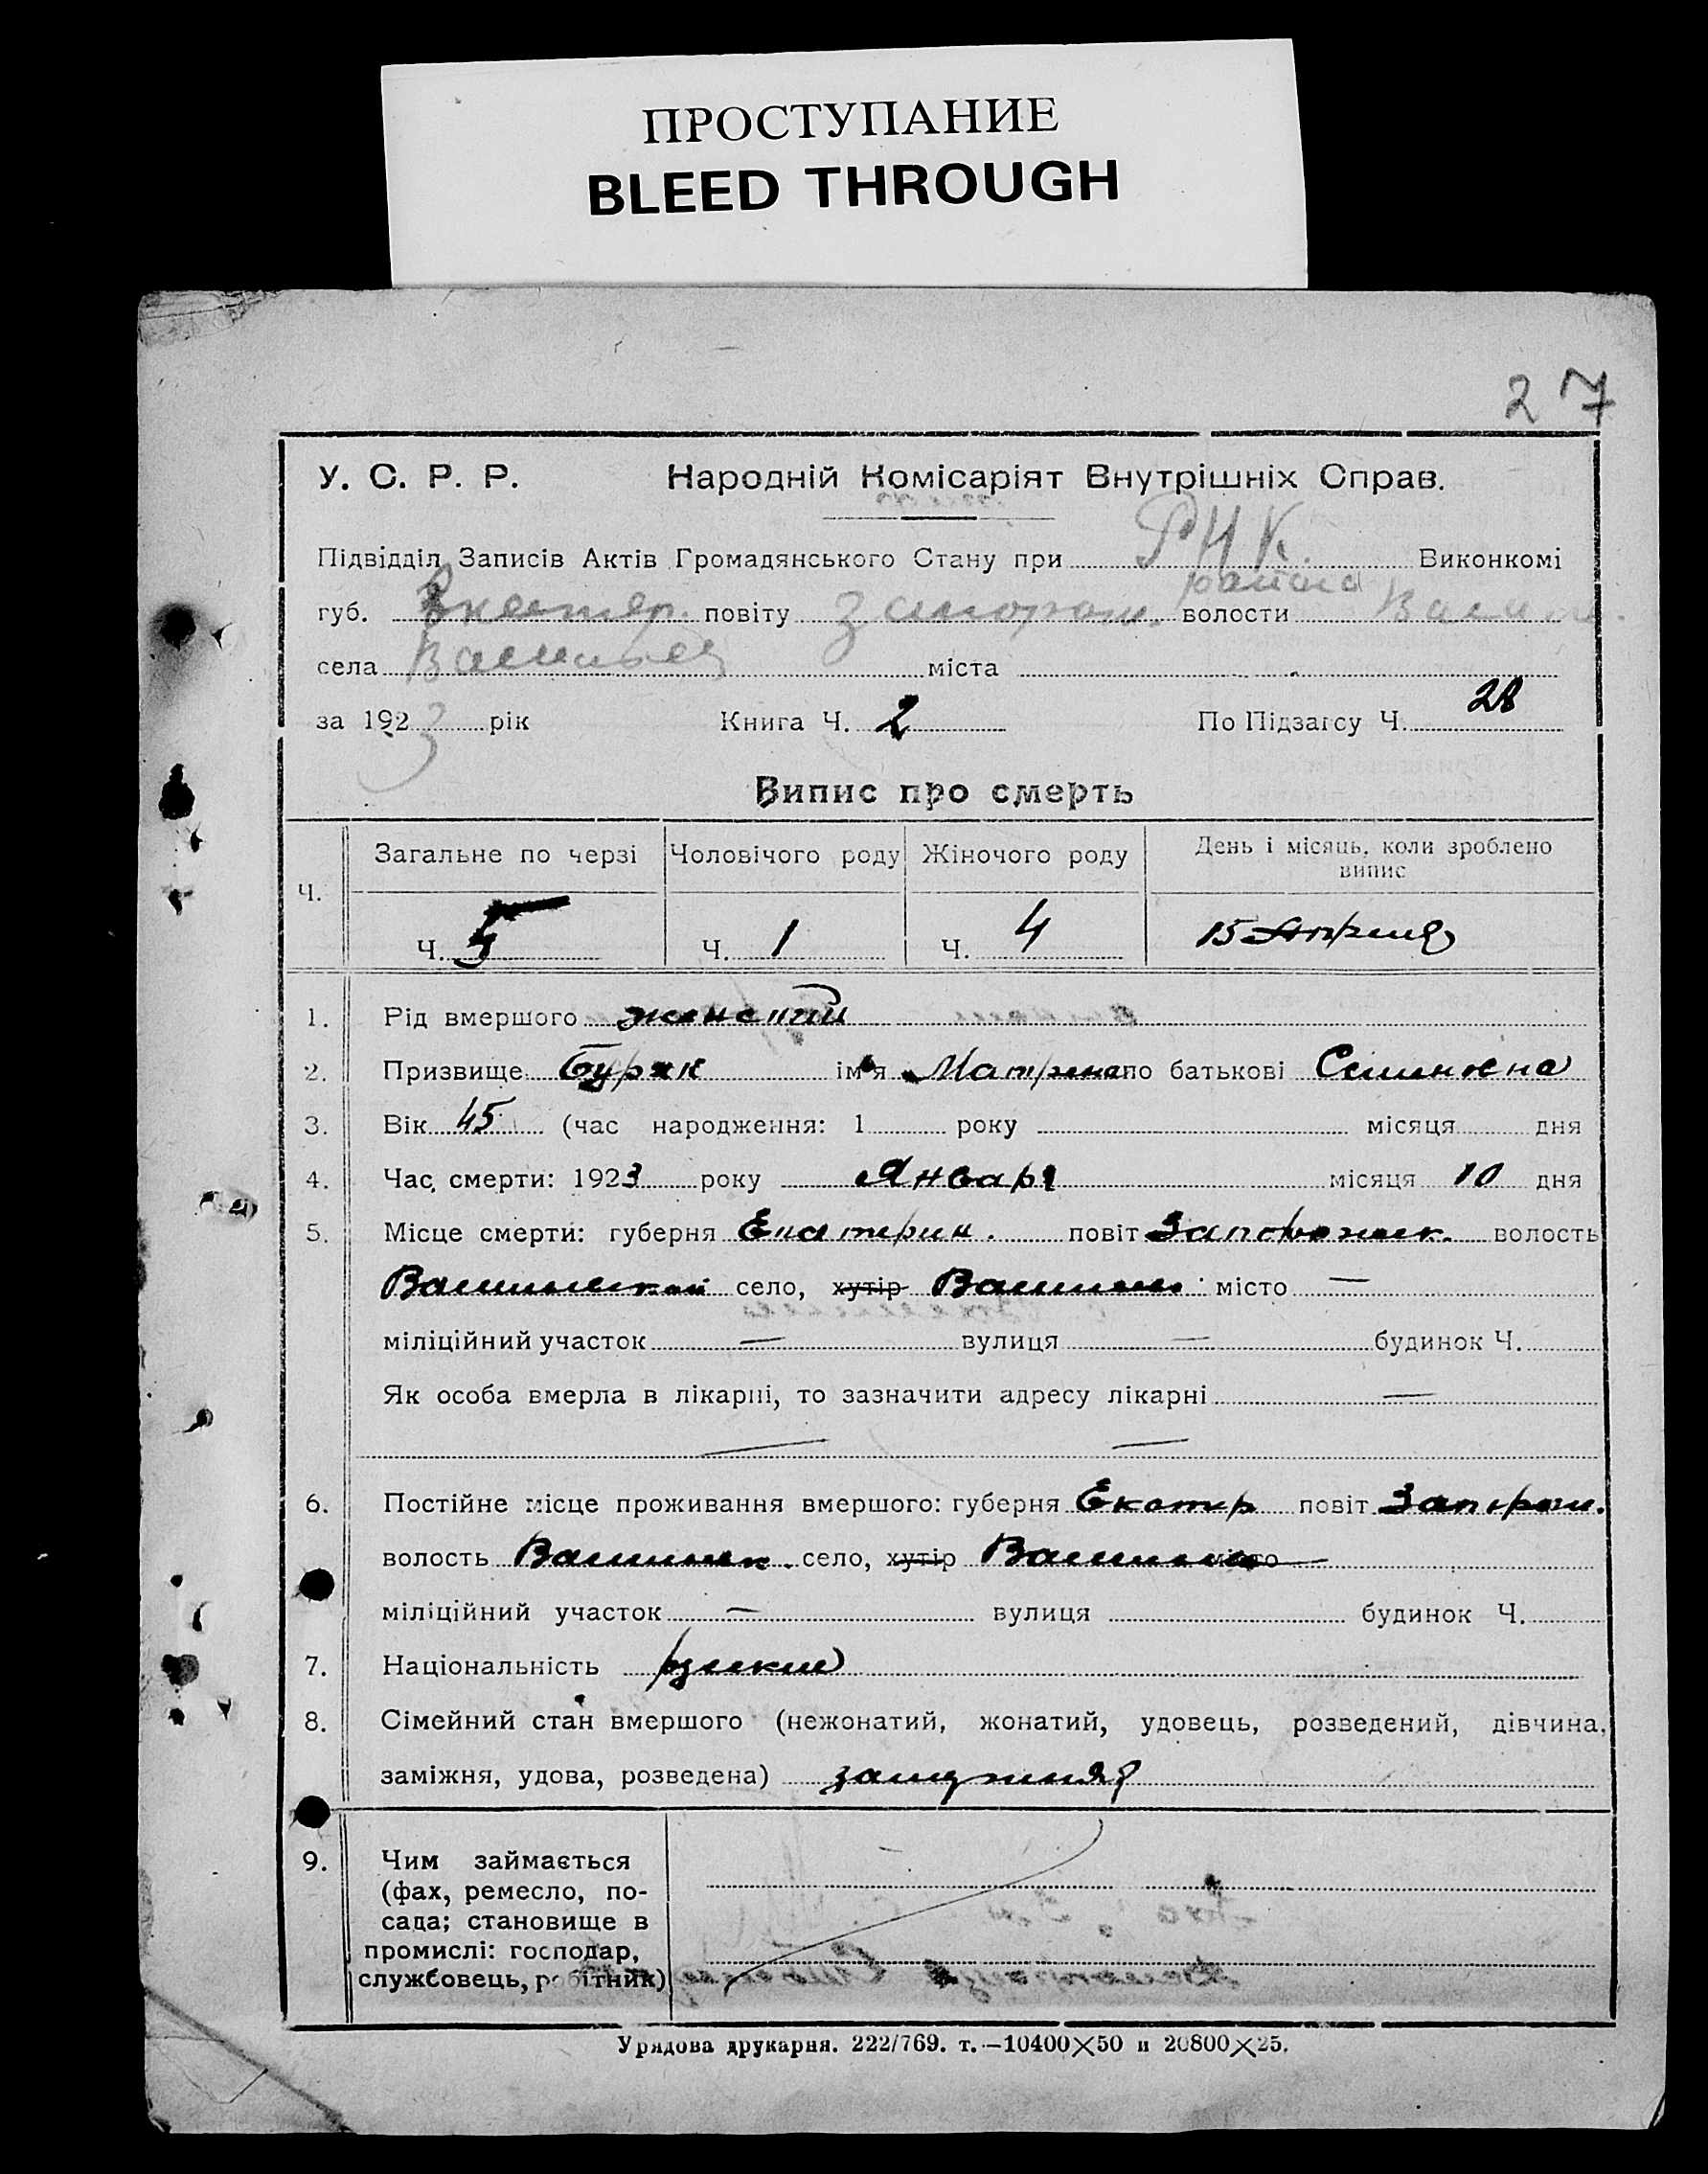 ПРОСТУПАНИЕ
BLEED THROUGH
27
У. С. Р. Р. Народній Комісаріят Внутрішніх Справ.
Підвідділ Записів Актів Громадянського Стану при РИК. Виконкомі
района
губ. Екатер. повіту Запорож. волости
села міста
за 1923 рік Книга Ч. 2 По Підзагсу Ч. 28
Випис про смерть
Ч. Загальне по черзі Чоловічого роду Жіночого роду День і місяць, коли зроблено випис
Ч. 5 Ч. 1 Ч. 4 15 Апреля
1. Рід вмершого женский
2. Призвище Буряк ім'я Матрена по батькові Семеновна
3. Вік 45 (час народження: 1 року місяця дня
4. Час смерти: 1923 року Января місяця 10 дня
5. Місце смерти: губерня Екатерин. повіт Запорожск. волость
село, хутір місто —
міліційний участок — вулиця — будинок Ч.
Як особа вмерла в лікарні, то зазначити адресу лікарні —
— —
6. Постійне місце проживання вмершого: губерня Екатер повіт Запорож.
волость село, хутір місто —
міліційний участок — вулиця будинок Ч.
7. Національність
8. Сімейний стан вмершого (нежонатий, жонатий, удовець, розведений, дівчина,
заміжня, удова, розведена) замужняя
9. Чим займається
(фах, ремесло, по-
сада; становище в
промислі: господар,
службовець, робітник)
Урядова друкарня. 222/769. т.—10400×50 и 20800×25.